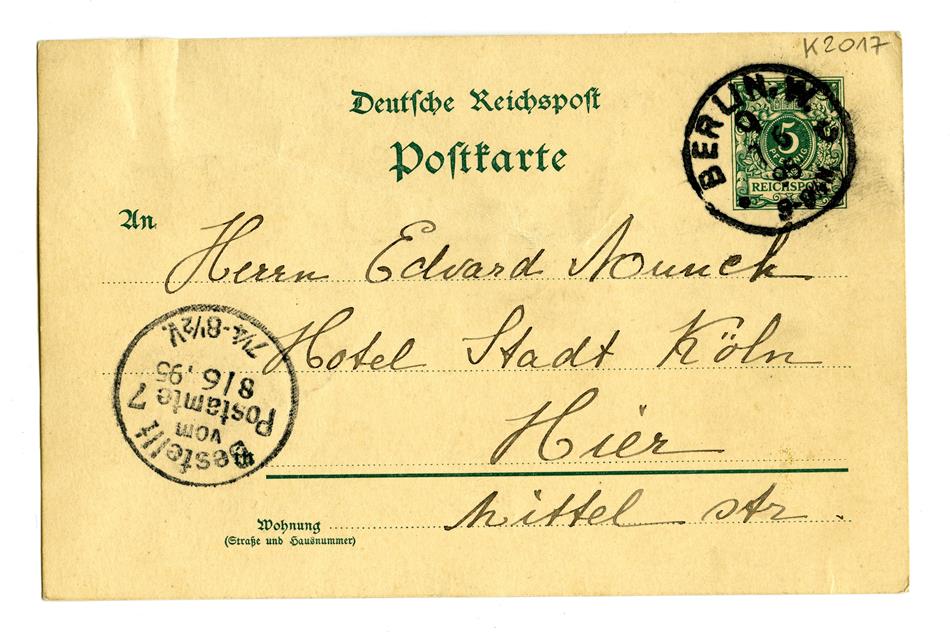 K2017
Deutsche Reichspost
Postkarte
BERLIN. W.
95
5
PFENNIG
REICHSPOST
An
Herrn Edvard Munch
Hotel Stadt Köln
Hier
Mittel str.
Wohnung
(Straße und Hausnummer)
Bestellt
vom
Postamte 7
8/6.95
7¼-8½V.